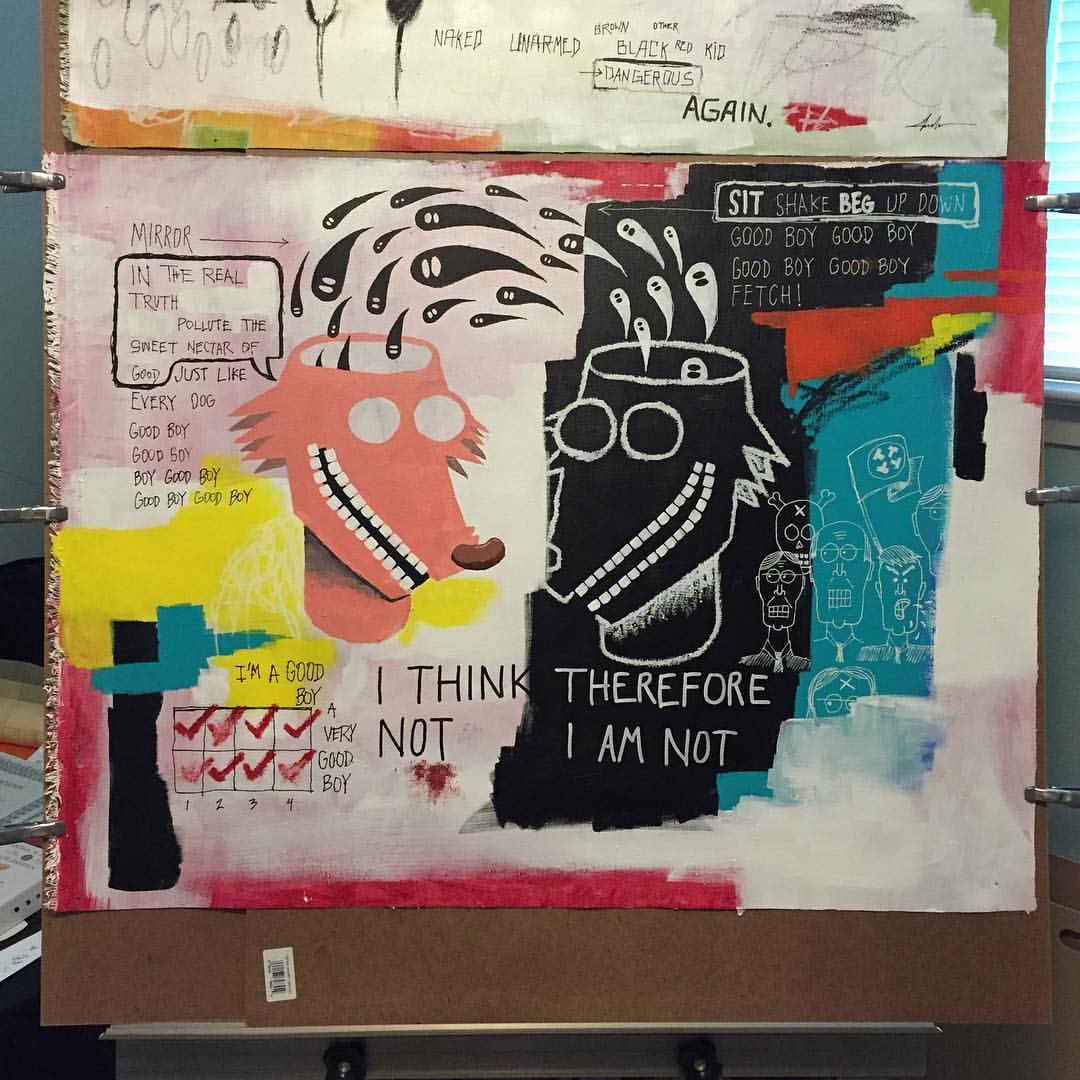 BROWN OTHER
NAKED UNARMED BLACK RED KID
DANGEROUS
AGAIN.
MIRROR
IN THE REAL
TRUTH
POLLUTE THE
SWEET NECTAR OF
GOOD JUST LIKE
EVERY DOG
GOOD BOY
GOOD BOY
BOY GOOD BOY
GOOD BOY GOOD BOY
SIT SHAKE BEG UP DOWN
GOOD BOY GOOD BOY
GOOD BOY GOOD BOY
FETCH!
I'M A GOOD
BOY
A
VERY
GOOD
BOY
1 2 3 4
I THINK THEREFORE
NOT I AM NOT